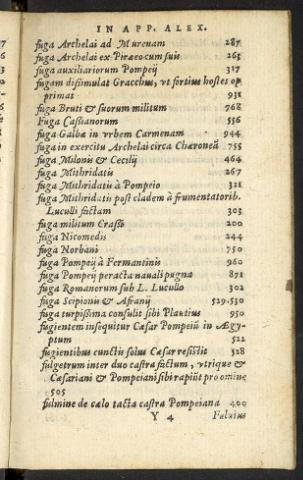 IN APP. ALEX.
fuga Archelai ad Murenam 287
fuga Archelai ex Piræeo cum suis 265
fuga auxiliariorum Pompeij 317
fugam dissimulat Gracchus, vt fortius hostes op
primat 931
fuga Bruti & suorum militum 768
Fuga Cassianorum 556
fuga Galbæ in vrbem Carmenam 944
fuga in exercitu Archelai circa Chæroneã 755
fuga Milonis & Cecilij 464
fuga Mithridatis 267
fuga Mithridatis à Pompeio 321
fuga Mithridatis post cladem à frumentatorib.
Luculli factam 303
fuga militum Crasso 200
fuga Nicomedis 244
fuga Norbani 750
fuga Pompeij à Fermantinis 960
fuga Pompeij peracta nauali pugna 871
fuga Romanorum sub L. Lucullo 302
fuga Scipionis & Afranij 529.530
fuga turpissima consulis sibi Plautius 950
fugientem insequitur Cæsar Pompeiũ in Ægy-
ptum 522
fugientibus cunctis solus Cæsar resistit 528
fulgetrum inter duo castra factum, vtrique &
Cæsariani & Pompeiani sibi rapiũt pro omine
505
fulmine de cælo tacta castra Pompeiana 400
Y 4 Fuluius